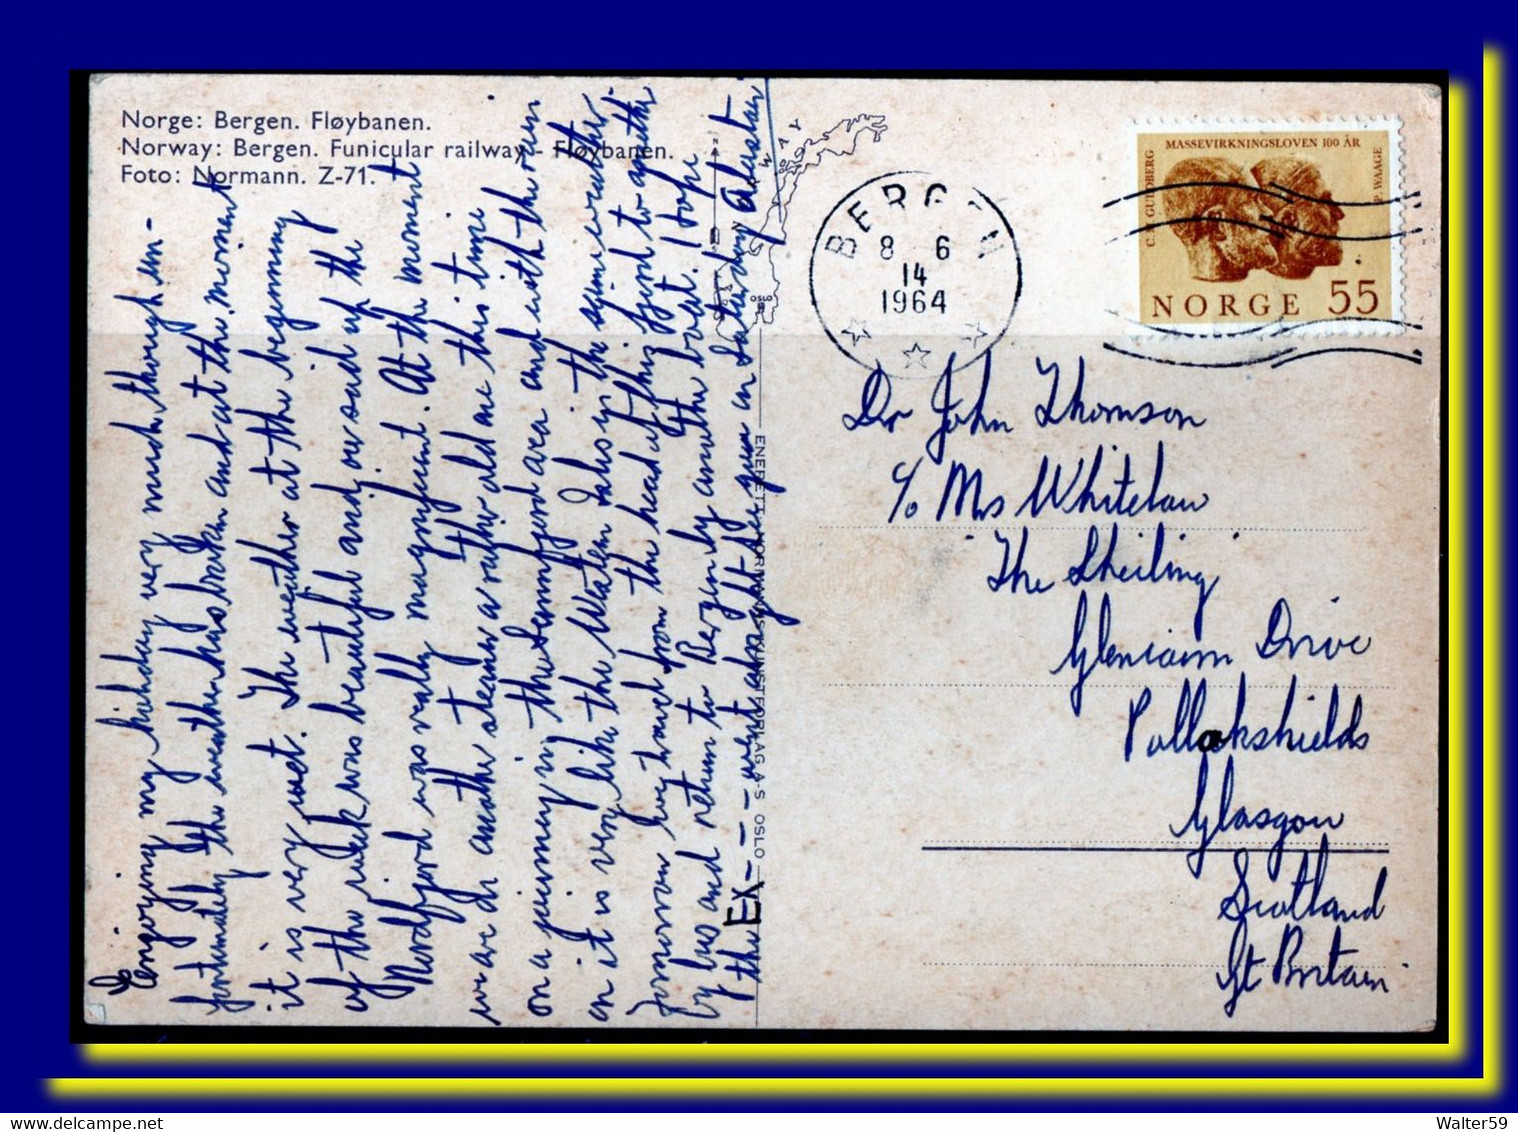 Norge: Bergen. Fløybanen.
Norway: Bergen. Funicular railway - Fløybanen.
Foto: Normann. Z-71.
Enjoying my holiday very much though un-
fortunately the weather has broken and at the moment
it is very wet. The weather at the beginning
of the week was beautiful and our sail up the
Nordfjord was really magnificent. At the moment
we are on another steamer a rather old one this time
on a journey in the Sunnfjord area and with the rain
on it is very like the Western Isles in the same weather.
Tomorrow we travel from the head of this fjord to another
by bus and return to Bergen by another boat. I hope
the EX- - - - went see you on Saturday Alastair
NORWAY
OSLO
ENERETT: NORMANNS KUNSTFORLAG A-S OSLO
BERGEN
8 6
14
1964
C. M. GULDBERG
MASSEVIRKNINGSLOVEN 100 ÅR
P. WAAGE
NORGE 55
Dr John Thomson
c/o Mrs Whitelaw
The Sheiling
Glencairn Drive
Pollokshields
Glasgow
Scotland
Gt Britain
Walter59